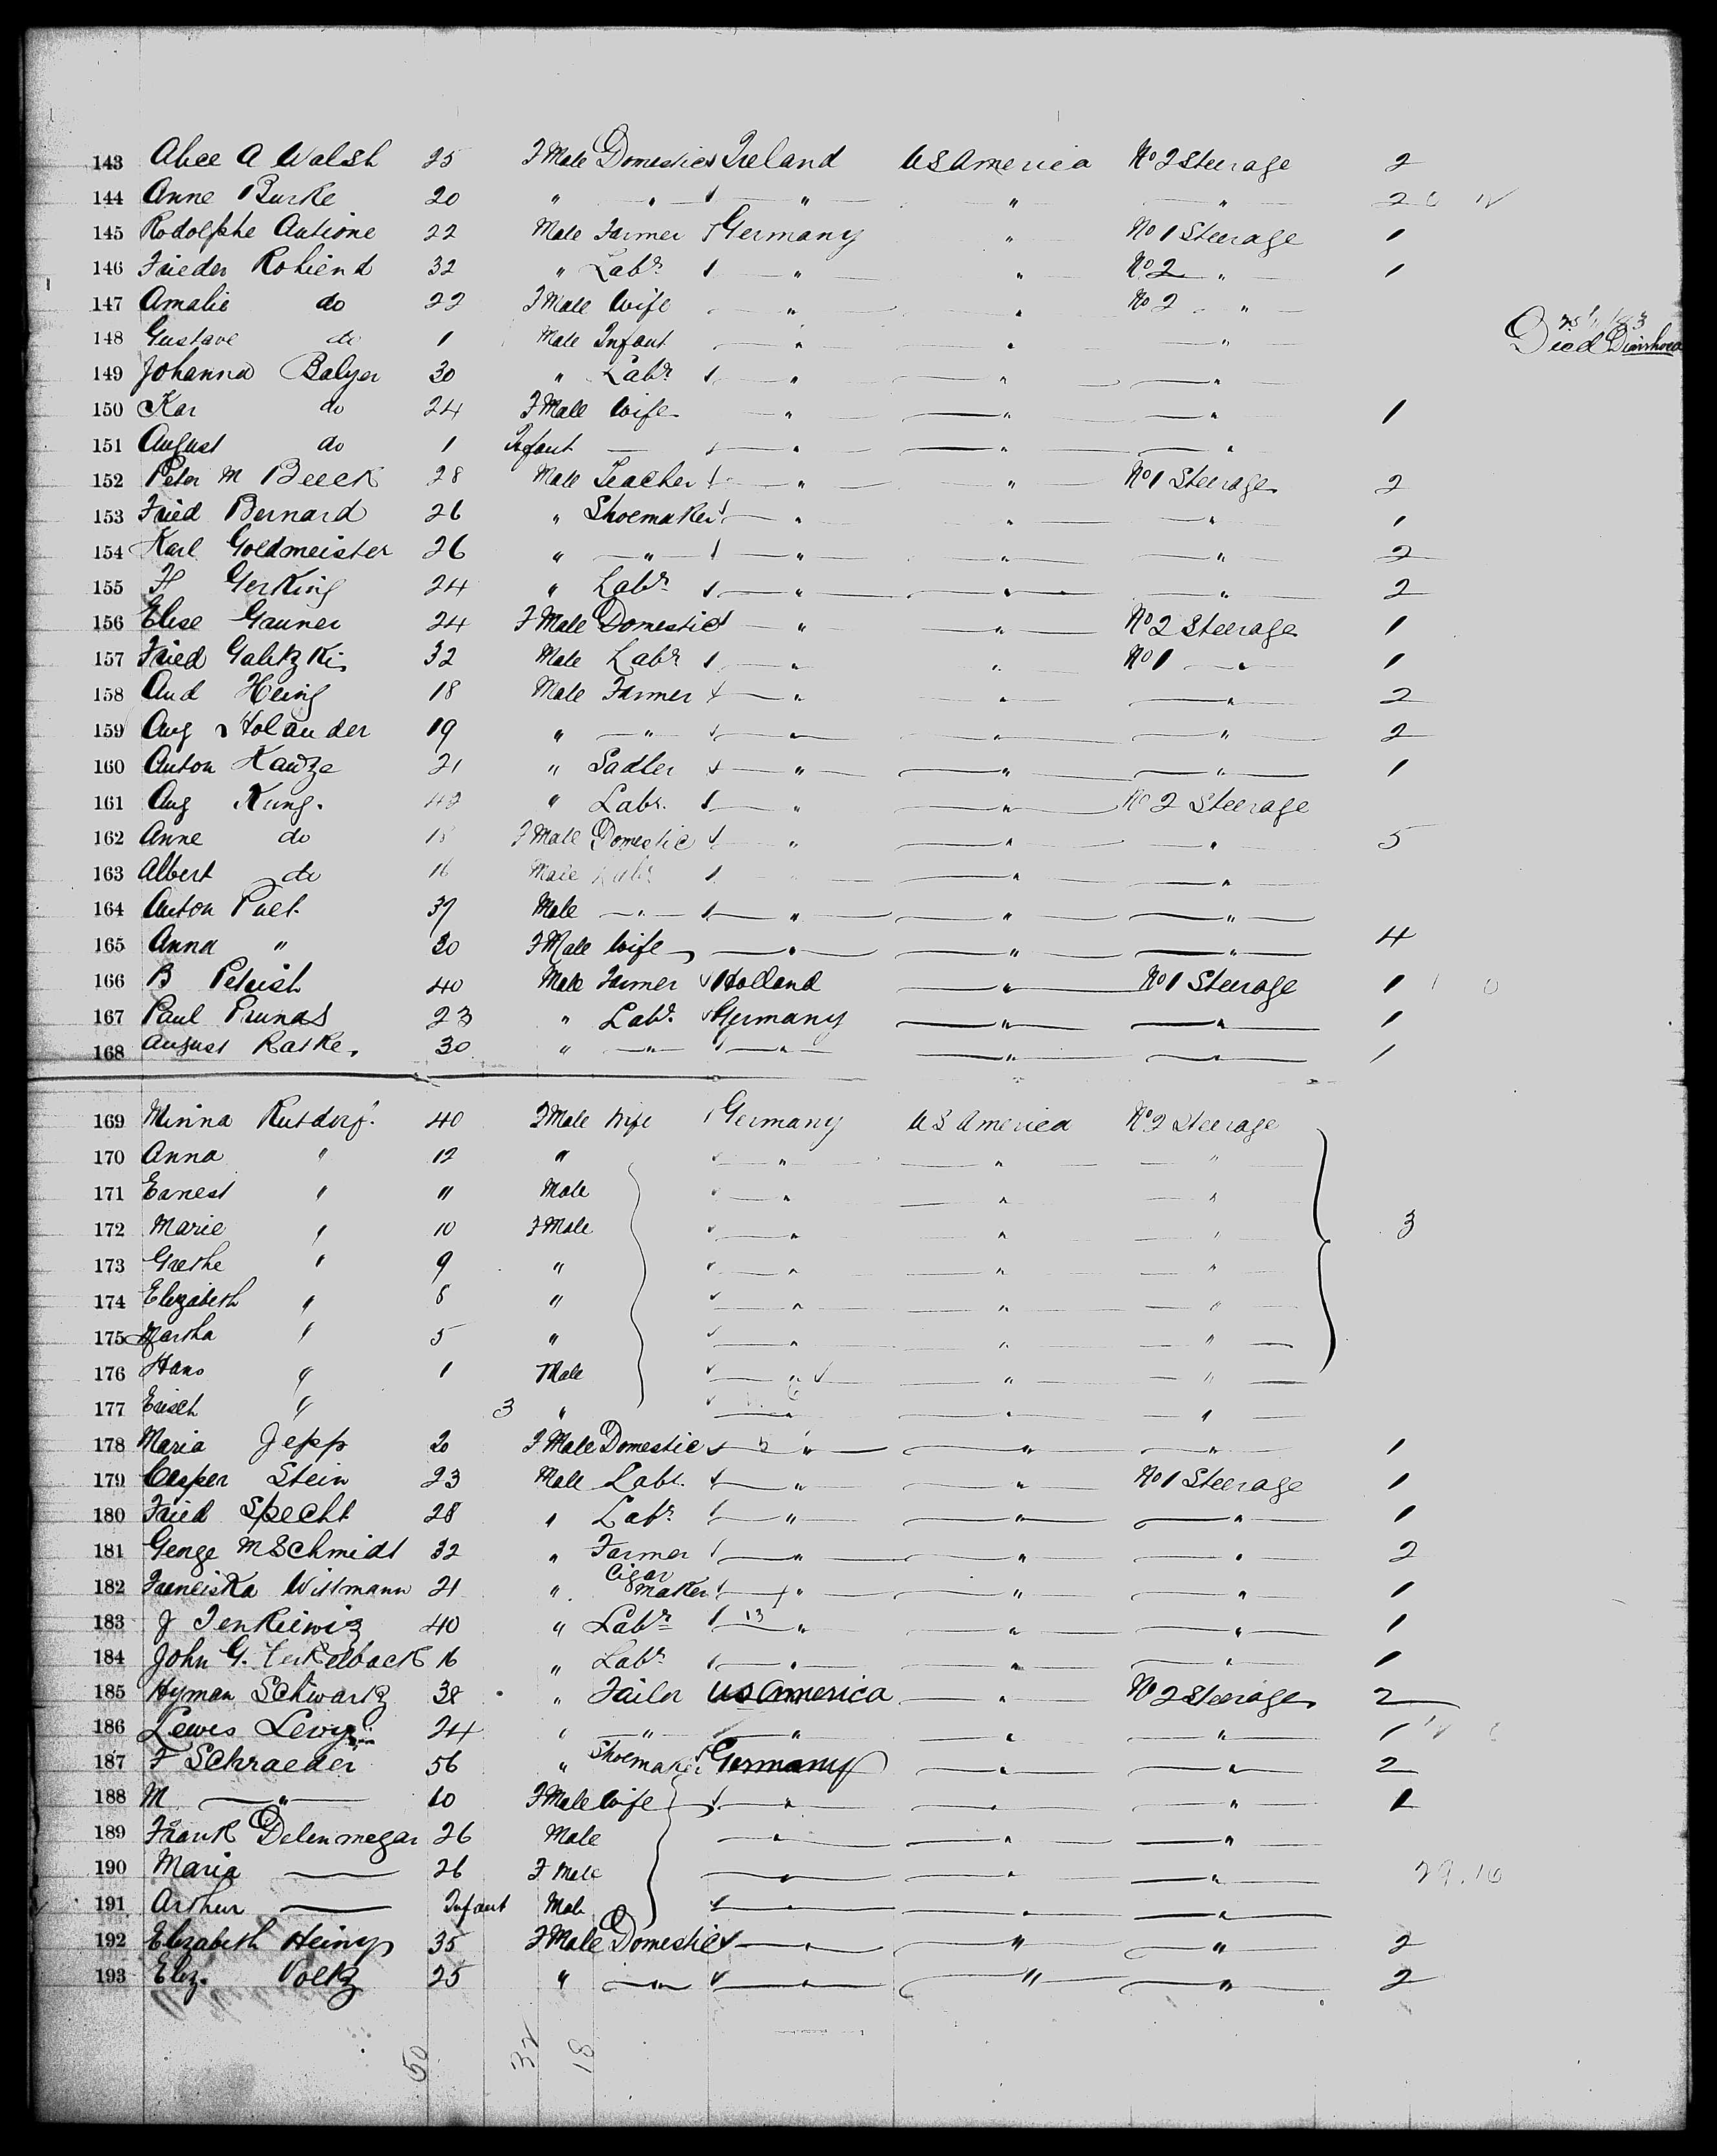 143 Alice A Walsh 25 F Male Domestics Ireland US America No 2 Steerage 2
144 Anne Burke 20 " " " " " 2
145 Rodolphe Autione 22 Male Farmer Germany " No 1 Steerage 1
146 Frieder Rohiend 32 " Labr " " No 2 " 1
147 Amalie do 22 F Male Wife " " No 2 "
148 Gustave do 1 Male Infant " " " Died Diarrhoea
149 Johanna Balyer 30 " Labr " " "
150 Kar do 24 F Male Wife " " " 1
151 August do 1 Infant " " "
152 Peter M Beeck 28 Male Teacher " " No 1 Steerage 2
153 Fried Bernard 26 " Shoemaker " " " 1
154 Karl Goldmeister 26 " " " " " 2
155 H Gerking 24 " Labr " " " 2
156 Elise Gauner 24 F Male Domestic " " No 2 Steerage 1
157 Fried Galitzki 32 Male Labr " " No 1 " 1
158 Aud Heing 18 Male Farmer " " " 2
159 Aug Holander 19 " " " " " 2
160 Anton Kautze 21 " Sadler " " " 1
161 Aug Kung. 42 " Labr. " " No 2 Steerage
162 Anne do 18 F Male Domestic " " " 5
163 Albert do 16 Male Labr " " "
164 Anton Puet. 37 Male " " " "
165 Anna " 30 F Male Wife " " " 4
166 B Petrish 40 Male Farmer Holland " No 1 Steerage 1
167 Paul Prunas 23 " Labr. Germany " " 1
168 August Ratke. 30 " " " " " 1
169 Minna Rutdorf. 40 F Male Wife Germany US America No 2 Steerage
170 Anna " 12 " " " "
171 Earnest " 11 Male " " "
172 Marie " 10 F Male " " " 3
173 Grethe " 9 " " " "
174 Elizabeth " 8 " " " "
175 Martha " 5 " " " "
176 Hans " 1 Male " " "
177 Erisch " 3 " " " "
178 Maria Jepp 20 F Male Domestic " " " 1
179 Casper Stein 23 Male Labr. " " No 1 Steerage 1
180 Fried Specht 28 " Labr " " " 1
181 George M Schmidt 32 " Farmer " " " 2
182 Franciska Wittmann 21 " Cigar maker " " " 1
183 J Jenkiewiz 40 " Labr 13 " " " 1
184 John G. 16 " Labr " " " 1
185 Hyman Schwartz 38 " Tailor US America " No 2 Steerage 2
186 Lewis Levy 24 " " " " " 1
187 F Schraeder 56 " Shoemaker Germany " " 2
188 M " 60 F Male Wife " " " 1
189 Frank Delenmegar 26 Male " " "
190 Maria 26 F Male " " " 29.16
191 Arthur Infant Male " " "
192 Elizabeth Heiny 35 F Male Domestic " " " 2
193 Eliz. Voltz 25 " " " " " 2
50 32 18